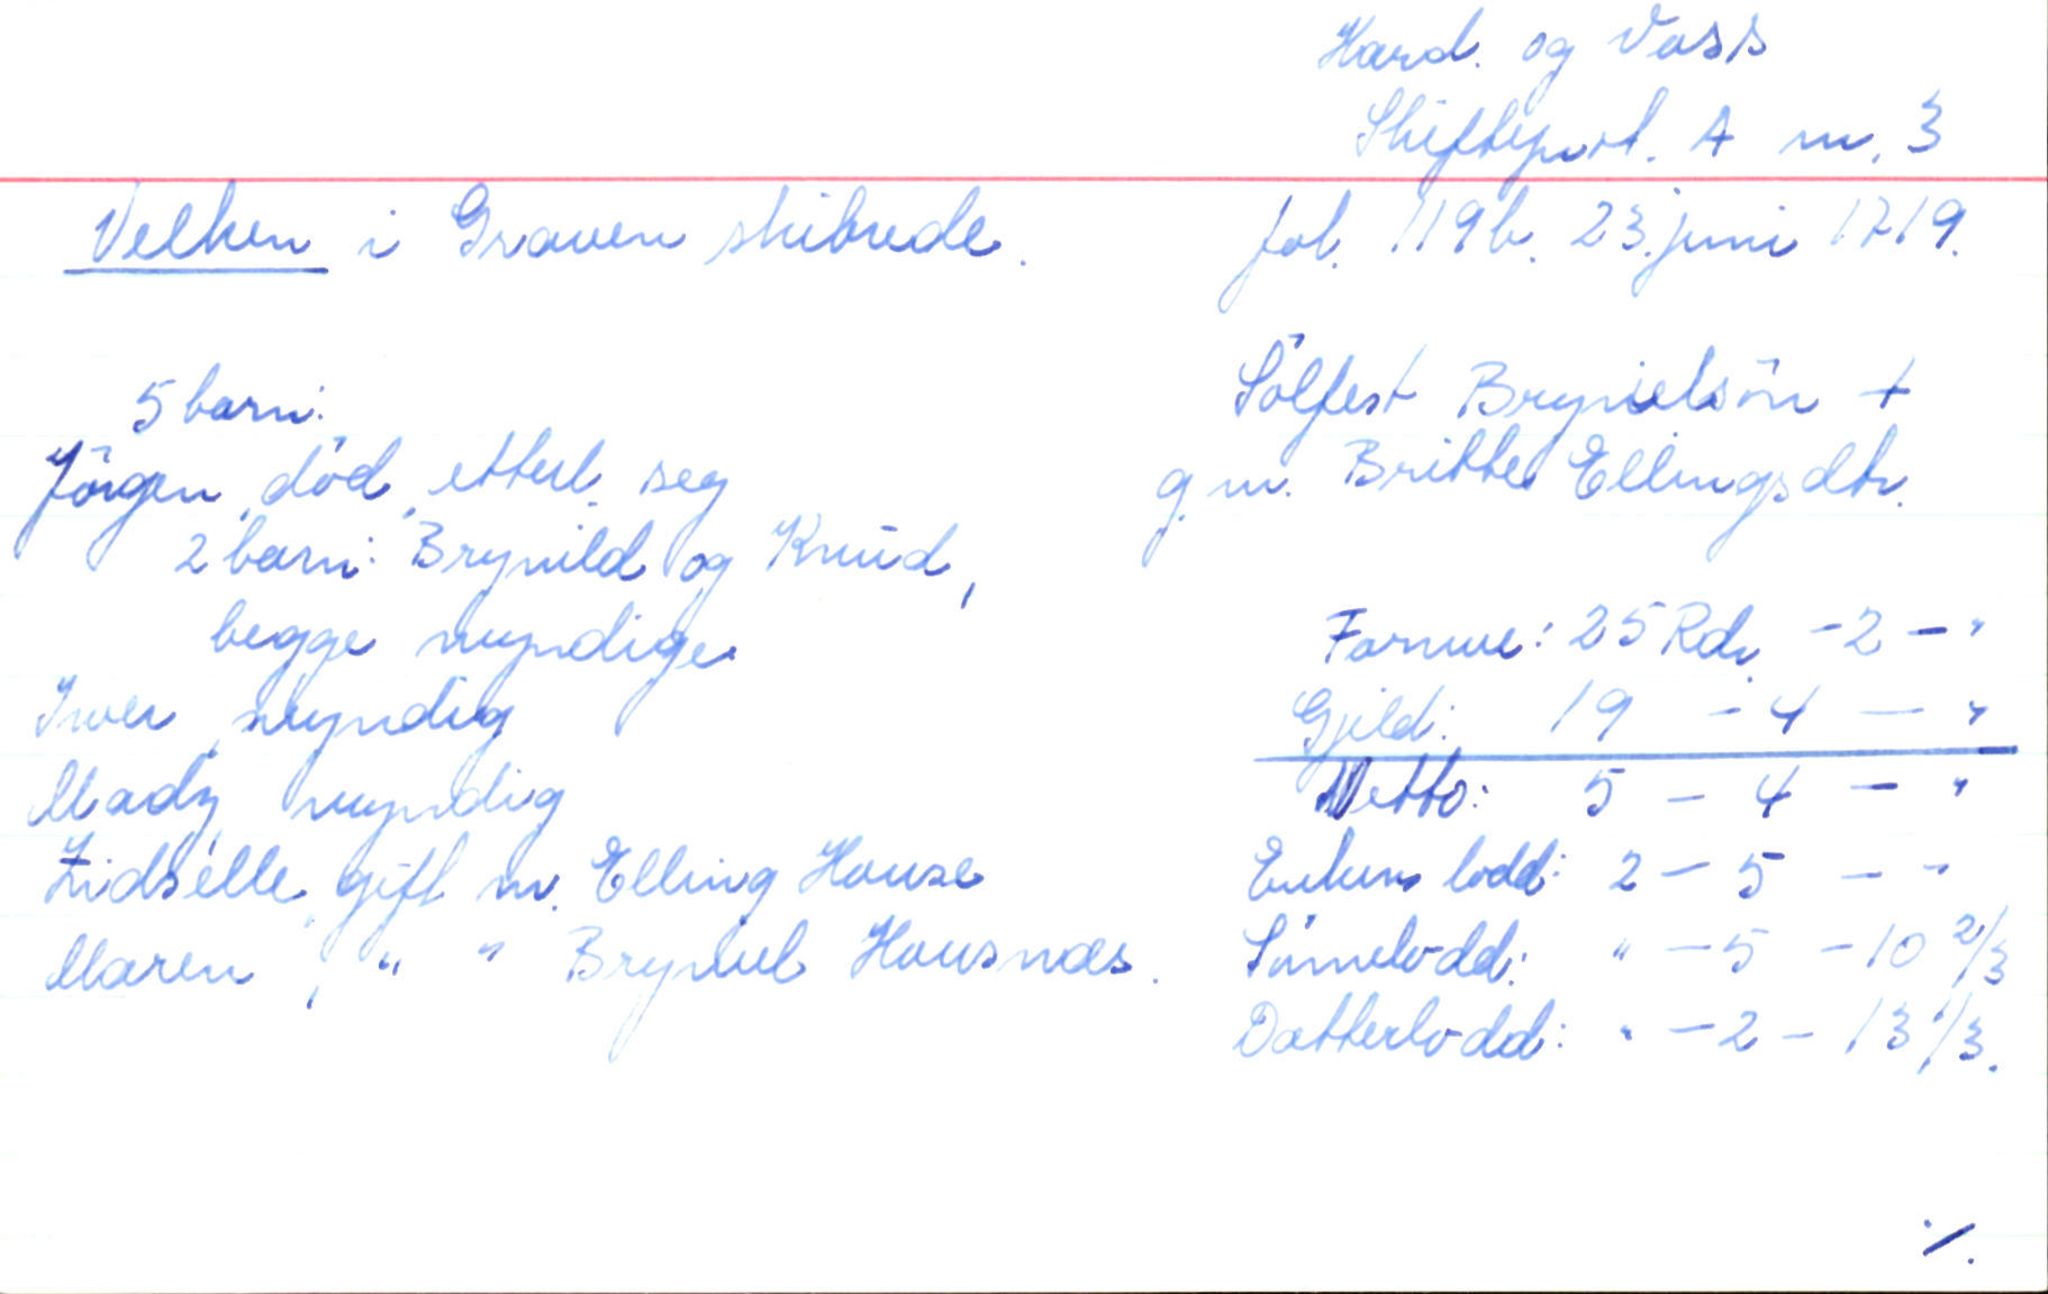 Hard. og Voss
Skifteprot. A nr. 3
Velken i Graven skibrede.
fol. 119b. 23. juni 1719.
Sölfest Brynielsön +
g.m. Britte Ellingsdtr.
5 barn:
Jörgen, död, etterl. seg
2 barn: Brynild og Knud,
begge myndige
Iver, myndig
Mads, myndig
Zidselle, gift m. Elling House
Maren, " " Bryniel Housnæs.
Formue: 25 Rdr. - 2 - "
Gjeld: 19 - 4 - "
Netto: 5 - 4 - "
Enkens lodd: 2 - 5 - "
Sönnelodd: " - 5 - 10 2/3
Datterlodd: " - 2 - 13 1/3.
./.